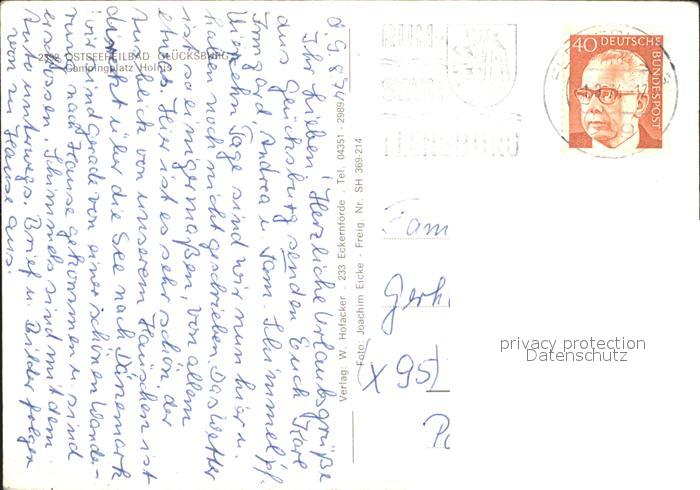 2392 OSTSEEHEILBAD GLÜCKSBURG
Campingplatz Holnis
d. 9.8.74
Ihr Lieben! Herzliche Urlaubsgrüße
aus Glücksburg senden Euch Karl
Irmgard, Andrea u. Fam. Schimmelpf.
Uns zehn Tage sind wir nun hier u.
haben noch nicht geschrieben. Das Wetter
ist so einigermaßen, vor allem
Hier ist es sehr schön, der
Ausblick von unserem Häuschen ist
direkt über die See nach Dänemark
wir sind gerade von einer schönen Wande-
rung nach Hause gekommen u. sind
Schimmels sind mit dem
Auto unterwegs. Brief u. Bilder folgen
von zu Hause aus.
Verlag: W. Hofacker . 233 Eckernförde . Tel. 04351 - 2989
Foto: Joachim Eicke - Freig. Nr. SH 369-214
40 DEUTSCHE
BUNDESPOST
Fam
Gerh
(X 95)
privacy protection
Datenschutz